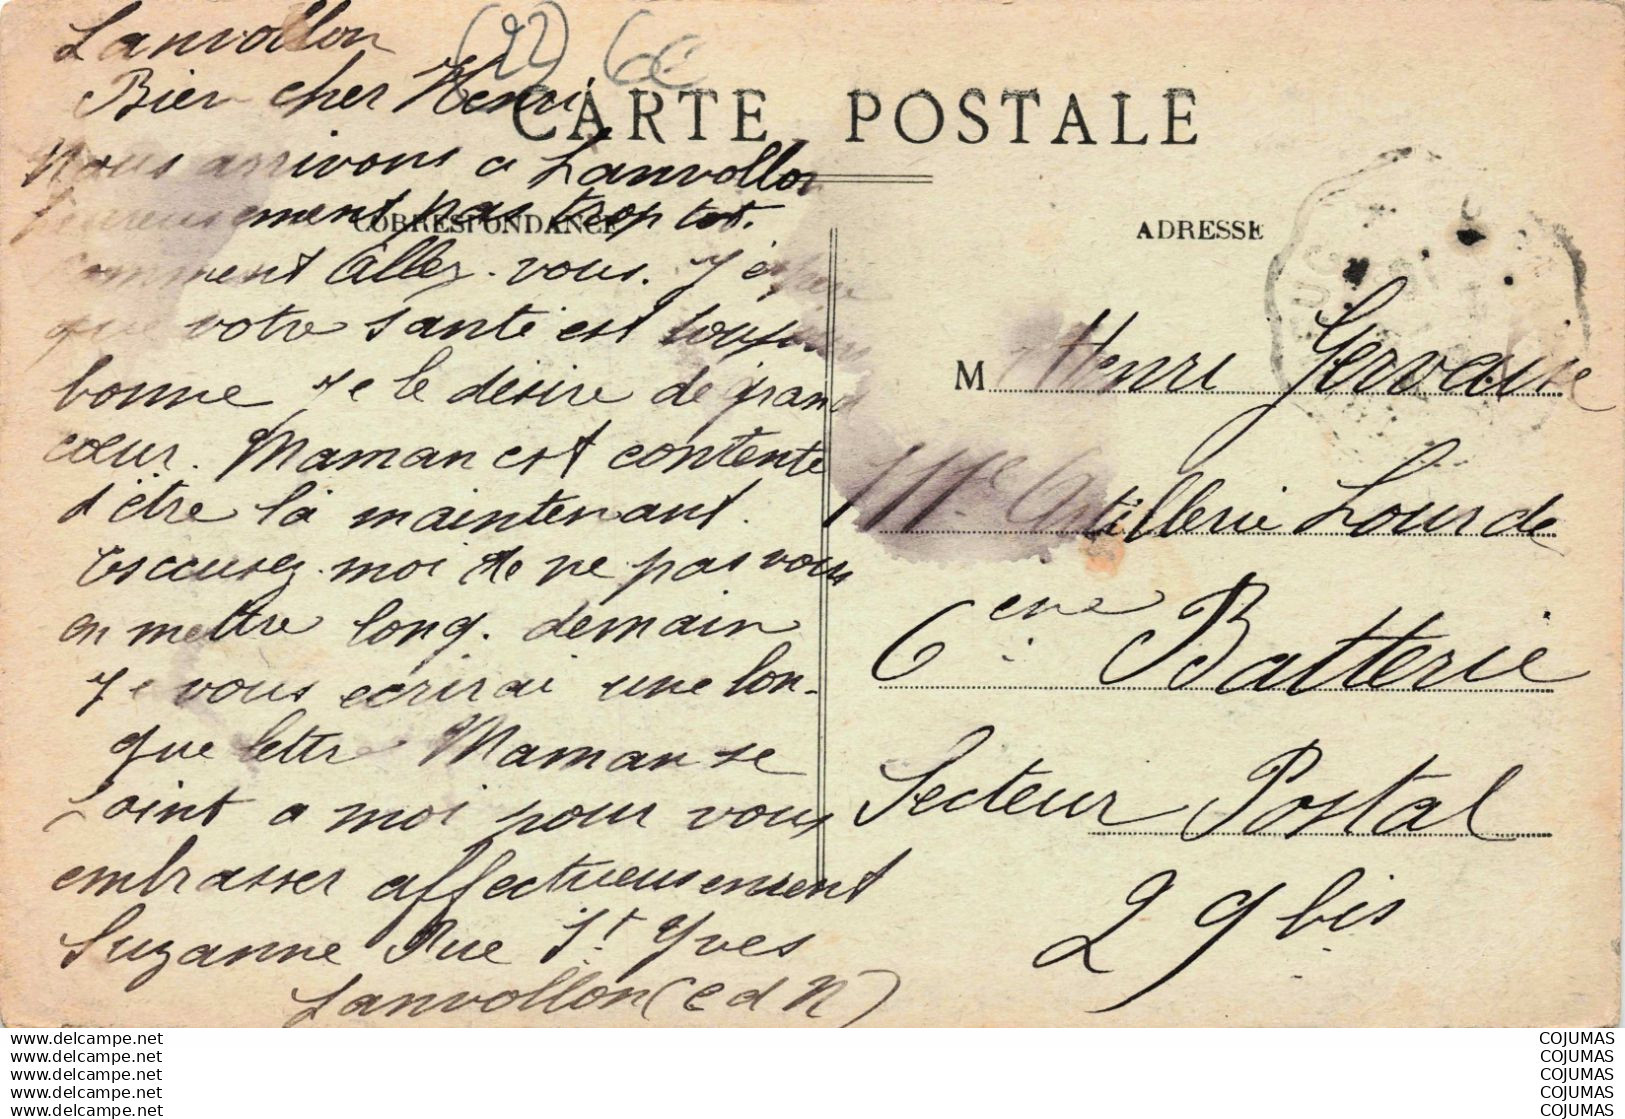 (22) 6€
CARTE POSTALE
CORRESPONDANCE
ADRESSE
Lanvollon
Bien cher Henri
Nous arrivons a Lanvollon
heureusement pas trop tot.
comment allez-vous. J'éspère
que votre santé est toujours
bonne Je le désire de grand
cœur. Maman est contente
d'être là maintenant.
Escousez-moi de ne pas vous
en mettre long. demain
Je vous ecrirai une lon-
gue lettre Maman se
Joint a moi pour vous
embrasser affectueusement
Suzanne Rue St Yves
Lanvollon (C d N)
M Henri Gervaise
111e Artillerie Lourde
6eme Batterie
Secteur Postal
29 bis
www.delcampe.net
www.delcampe.net
www.delcampe.net
www.delcampe.net
www.delcampe.net
COJUMAS
COJUMAS
COJUMAS
COJUMAS
COJUMAS